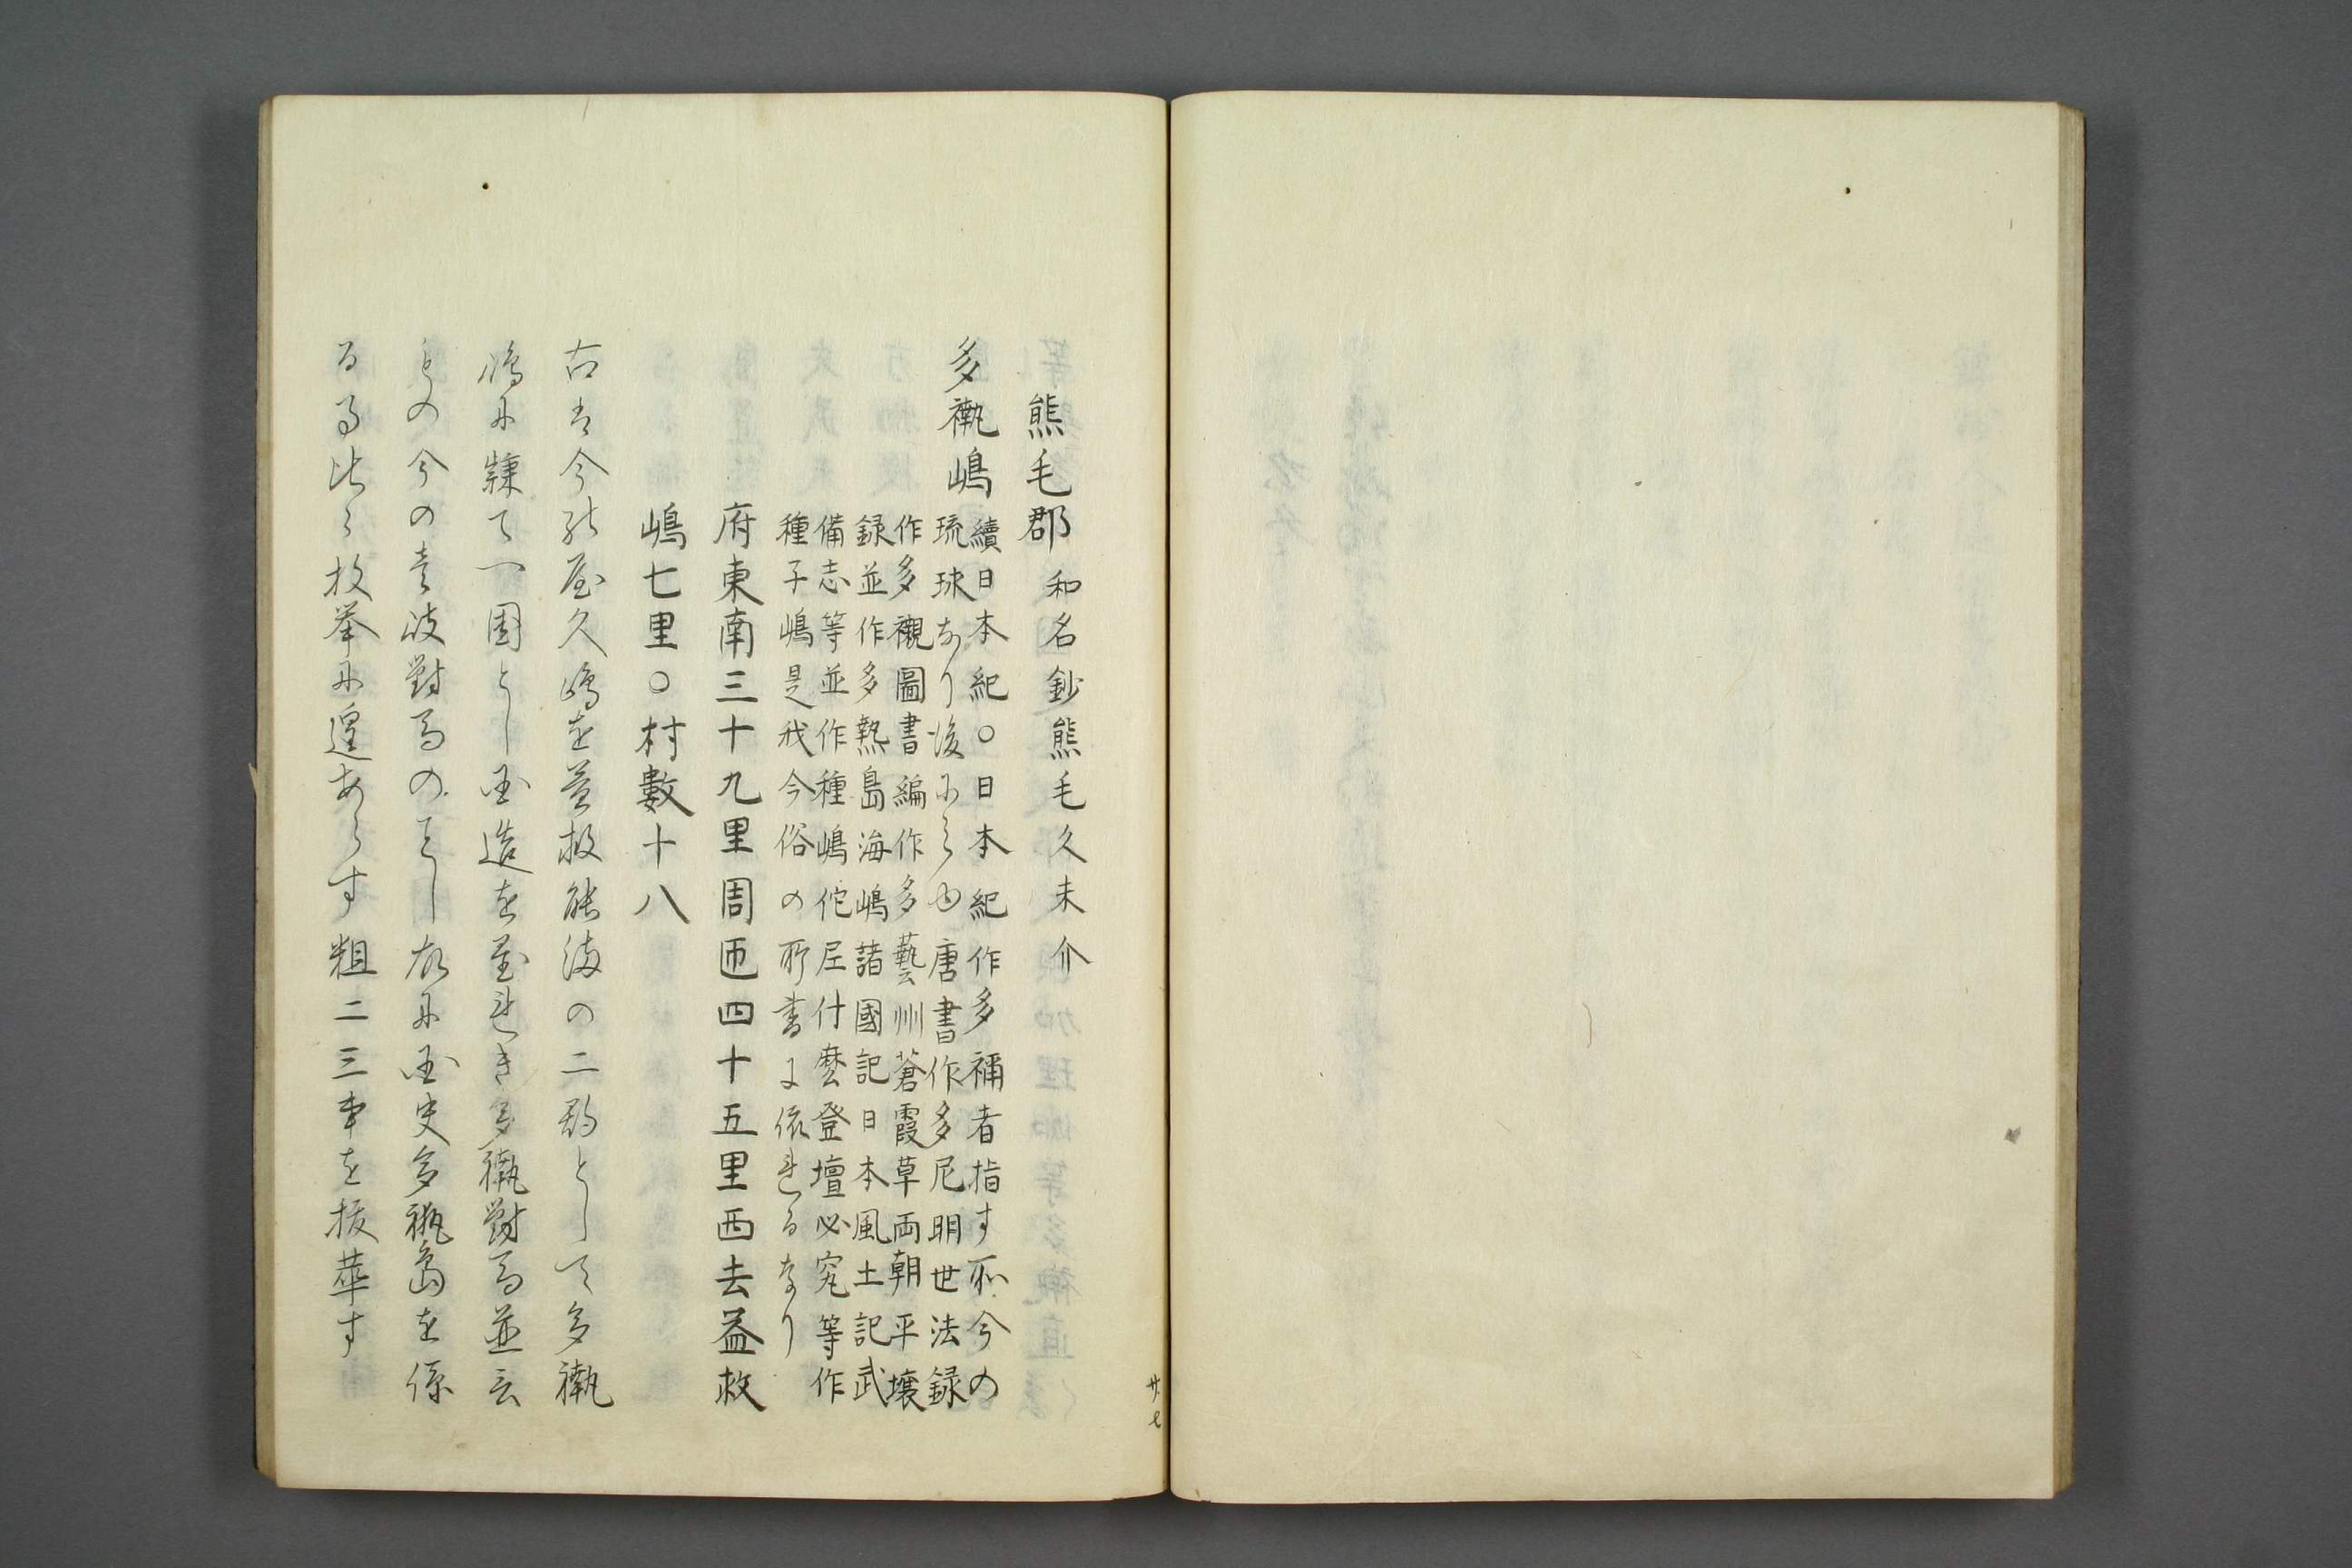 熊毛郡 和名鈔熊毛久未介
多褹嶋 續日本紀〇日本紀作多禰者指す所今の
琉球なり後にらゆ唐書作多尼明世法録
作多襯圖書編作多藝州蒼霞草両朝平壌
録並作多熱島海嶋諸國記日本風土記武
備志等並作種嶋佗㞐什麽登壇必究等作
種子嶋是我今俗の所書に依れるなり
府東南三十九里周匝四十五里西去益救
嶋七里〇村數十八
古は今の屋久嶋を益救能満の二郡として多褹
嶋に隷て一圀とし国造を置れき多褹對馬並言
もの今の壹岐對馬のことし故に国史多褹島を係
る事比ら枚挙に遑あらす粗二三事を抜萃す
廿七